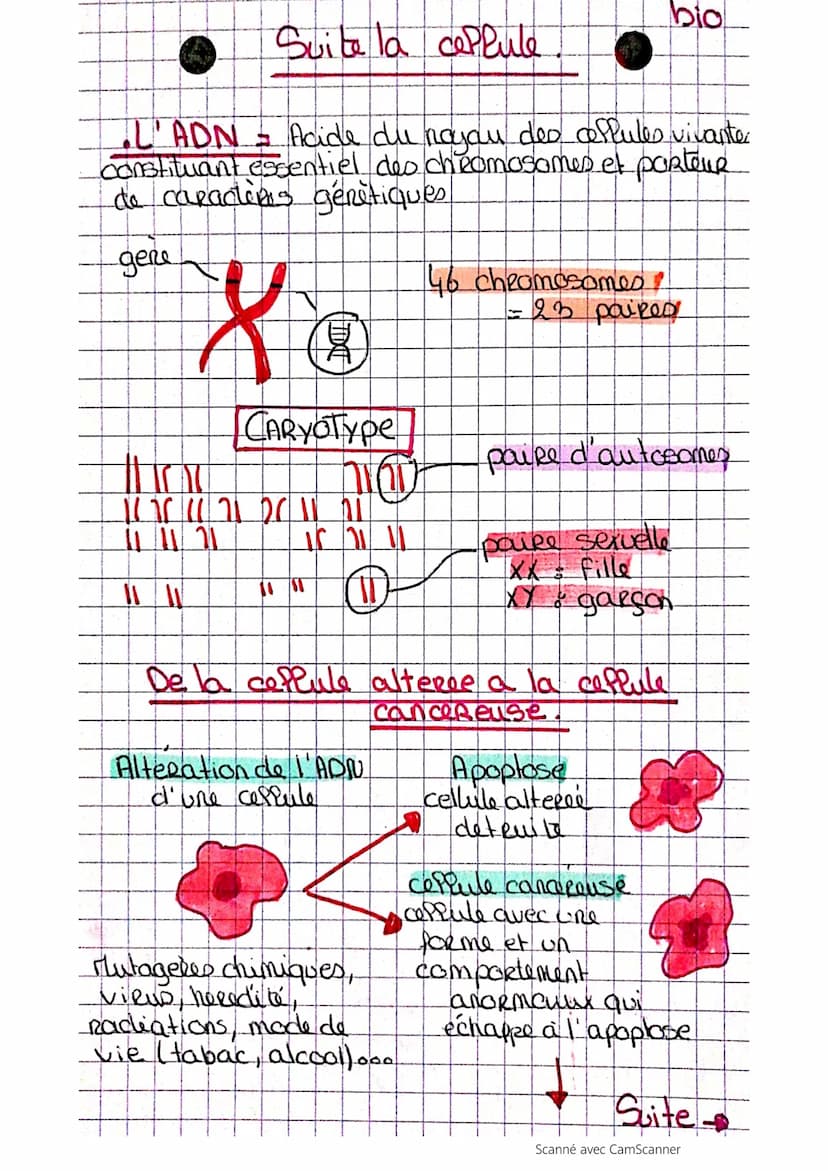 bio
Suite la cellule.
. L'ADN = Acide du noyau des cellules vivante
constituant essentiel des chromosomes et porteur
de caractères génétiques
gène
46 chromosomes !
= 23 paires
CARYOTYPE
paire d'autosomes
paire sexuelle
XX : fille
XY : garçon
De la cellule alteree a la cellule
cancereuse.
Altération de l'ADN
d'une cellule
Apoptose
cellule alteréé
detruite
cellule cancéreuse
cellule avec une
forme et un
comportement
anormaux qui
échappe à l'apoptose
Mutagenes chimiques,
virus, heredité,
radiations, mode de
vie (tabac, alcool)...
Suite →
Scanné avec CamScanner